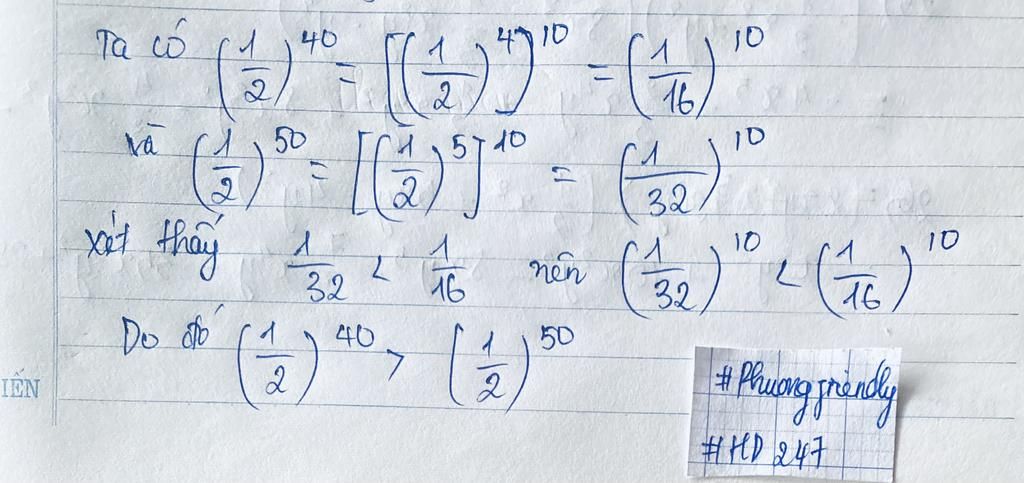 Ta có (1/2)^40 = [(1/2)^4]^10 = (1/16)^10
và (1/2)^50 = [(1/2)^5]^10 = (1/32)^10
xét thấy 1/32 < 1/16 nên (1/32)^10 < (1/16)^10
Do đó (1/2)^40 > (1/2)^50
IẾN
#Phuongfriendly
#HD247